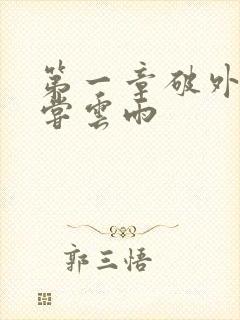 第一章破外
嘗雲雨
郭三悟